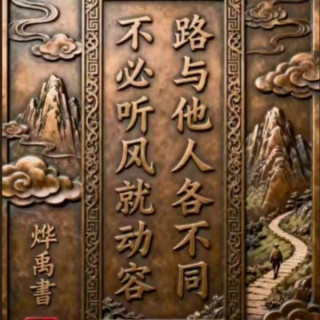 路与他人各不同
不必听风就动容
烨禹書